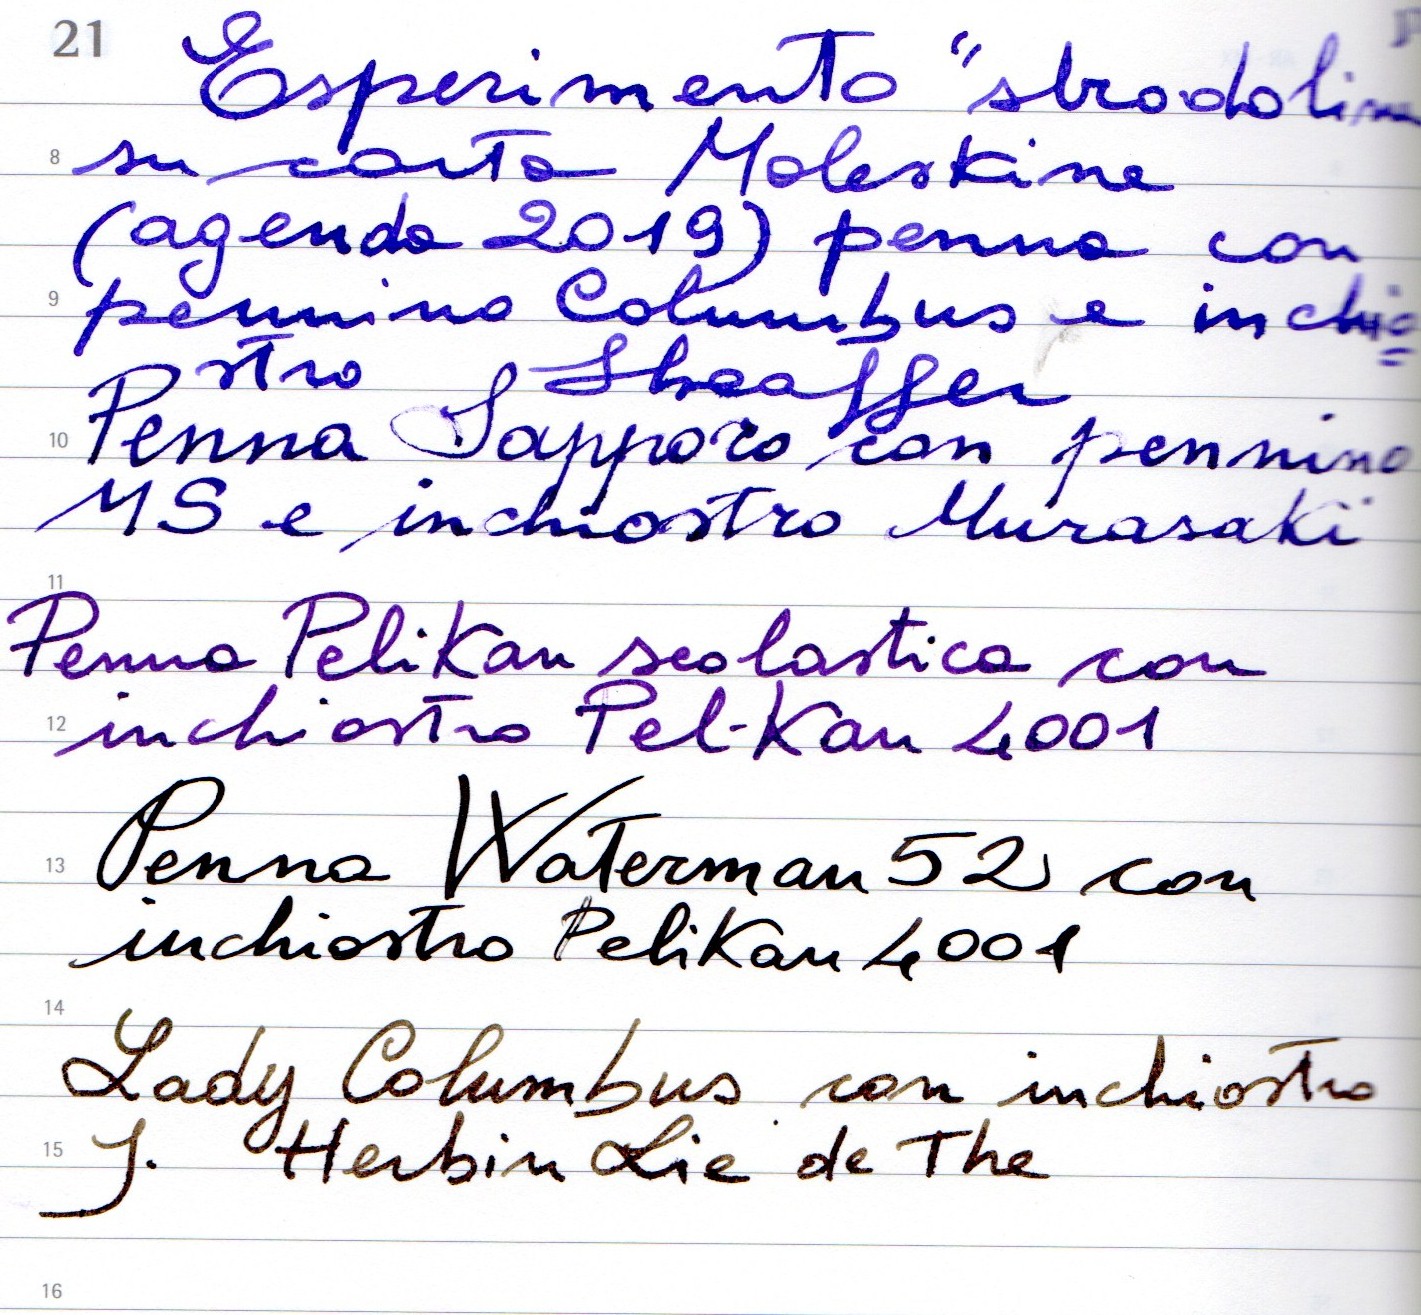 21
Esperimento "sbrodolin
8 su carta Moleskine
(agenda 2019) penna con
9 pennino Columbus e inchio
stro Sheaffer
10 Penna Sapporo con pennino
MS e inchiostro Murasaki
11
Penna Pelikan scolastica con
12 inchiostro Pelikan 4001
13 Penna Waterman 52 con
inchiostro Pelikan 4001
14
Lady Columbus con inchiostro
15 J. Herbin Lie de The
16